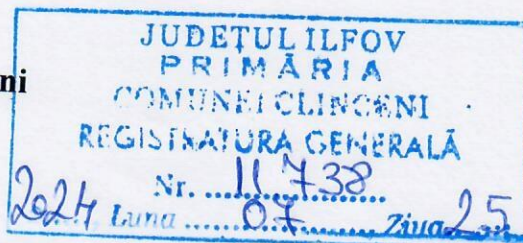 ni
JUDEȚUL ILFOV
PRIMĂRIA
COMUNEI CLINCENI
REGISTRATURA GENERALĂ
Nr. ....11738....
2024 Luna ....07.... Ziua 25